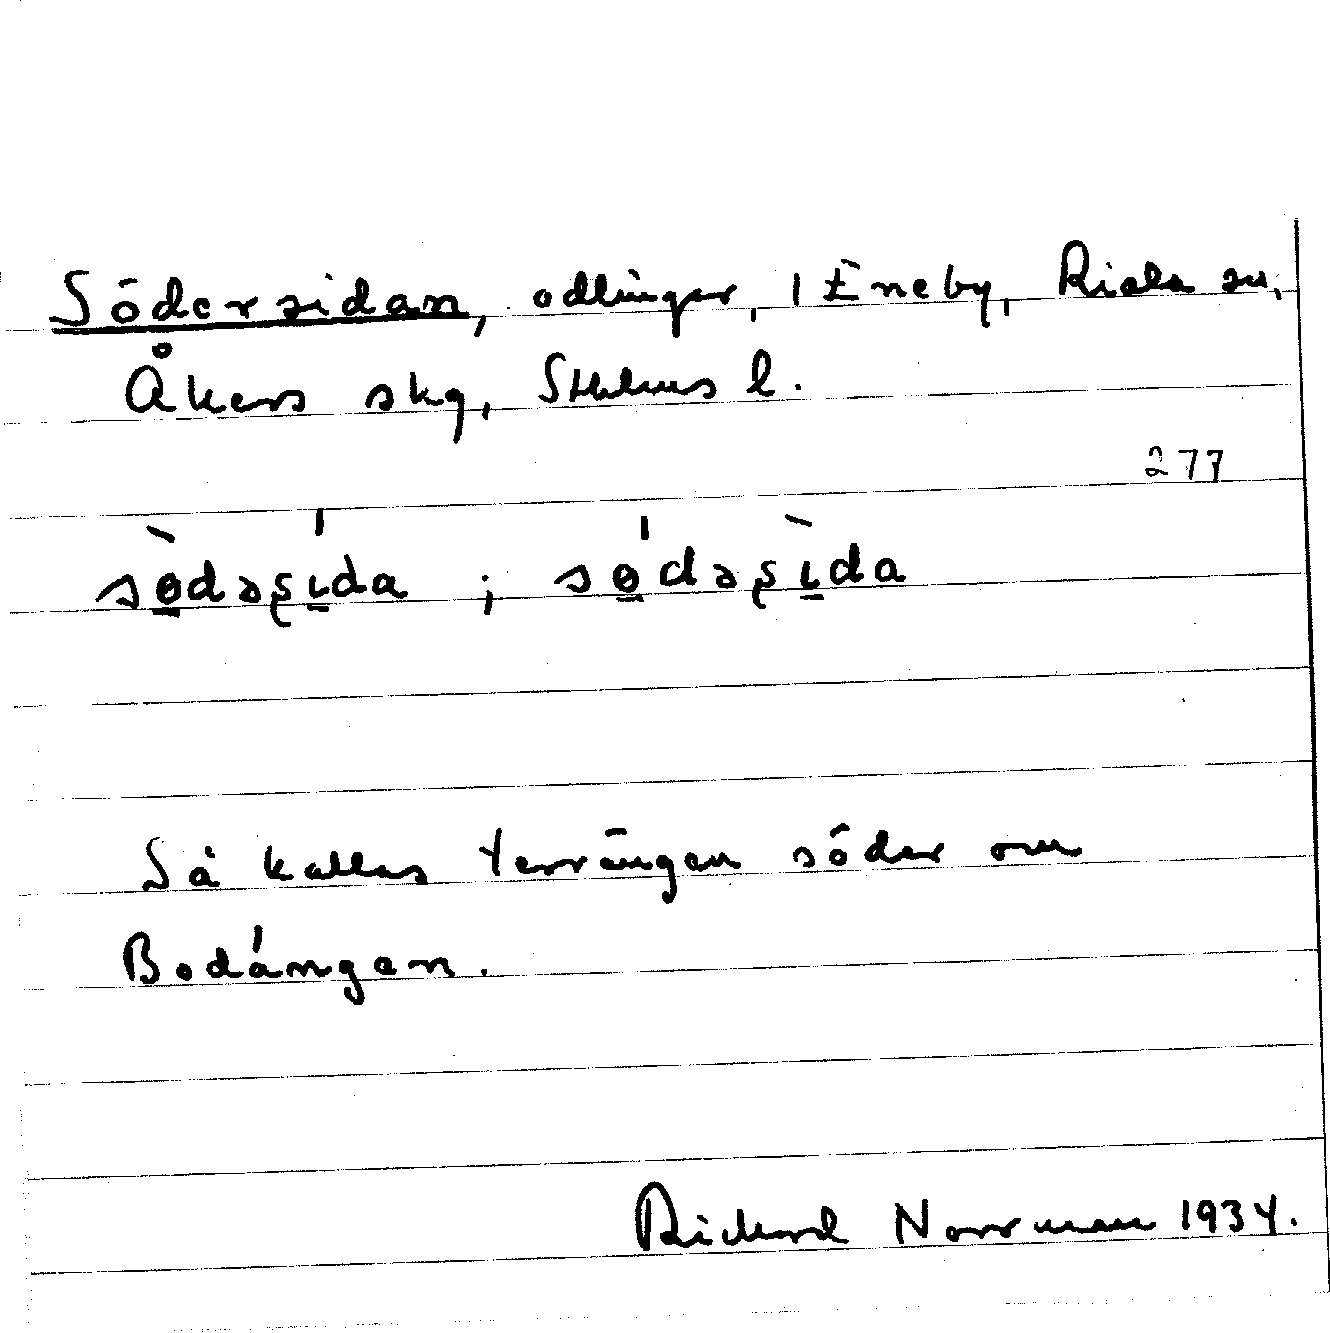 Södersidan, odlingar, 1 Eneby, Riala sn,
Åkers skg, Sthlms l.
277
sø̀dəşída ; sǿdəşìda
Så kallas terrängen söder om
Bodängen.
Rickard Norrman 1934.